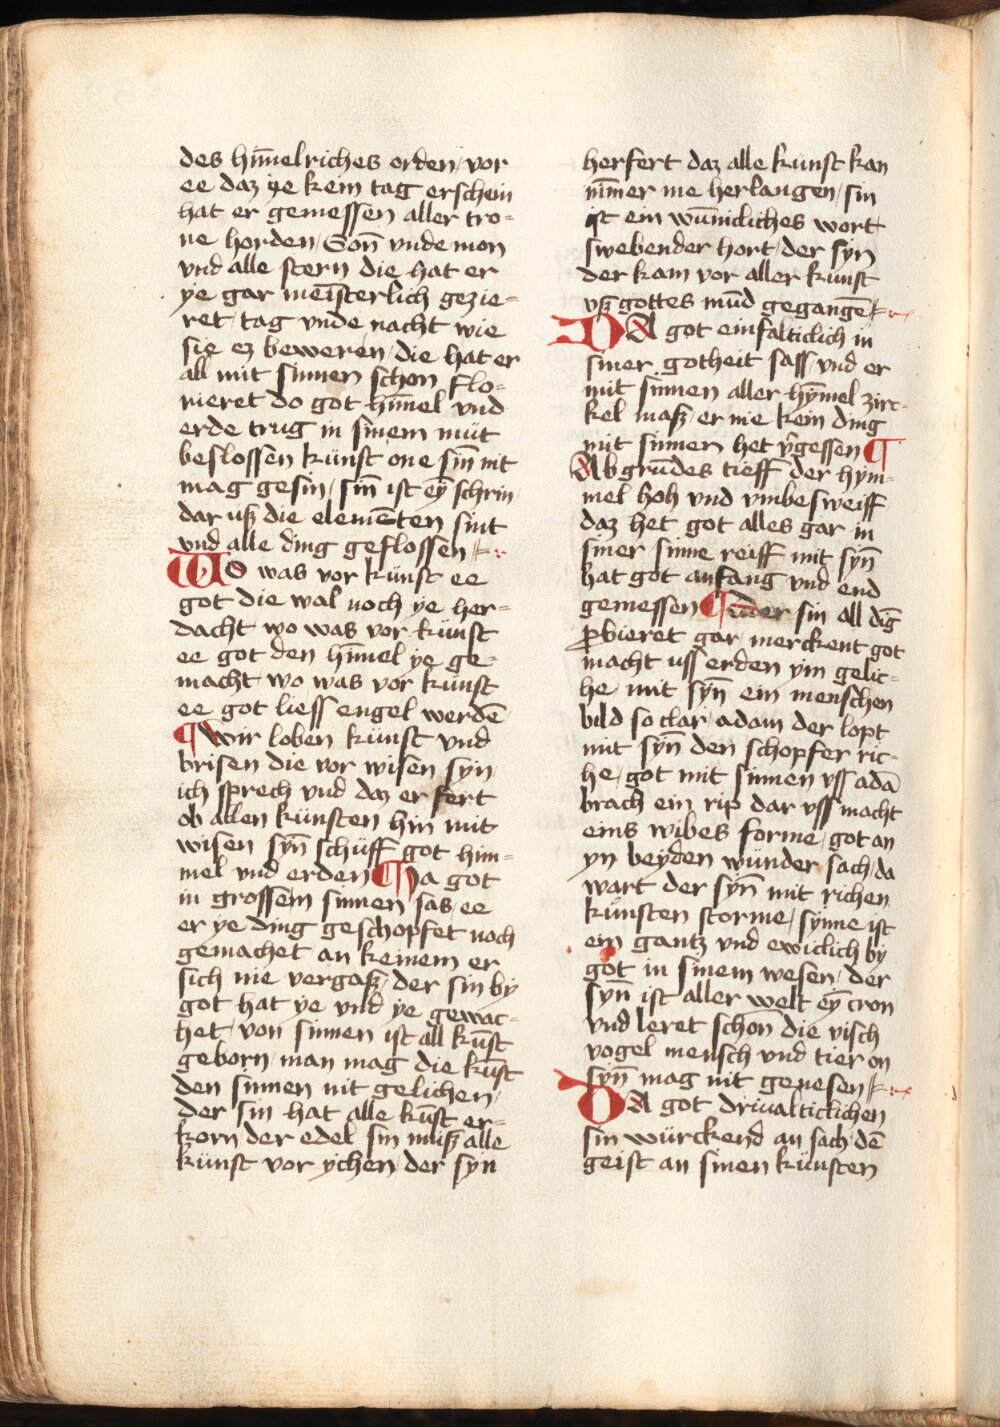 des hīmelriches orden / vor
ee daz ye kein tag erschein
hat er gemessen aller tro-
ne horden / Son̄ vnde mon
vnd alle stern die hat er
ye gar meisterlich gezie-
ret / tag vnde nacht wie
sie ez beweren / die hat er
all mit sinnen schon flo-
rieret do got hīmel vnd
erde trug in sinem müt
beslossen künst one sin̄ nit
mag gesin / sin̄ ist eȳ schrin
dar usz die elemēten sint
vnd alle ding geflossen
WO was vor künst ee
got die wal noch ye her-
dacht wo was vor künst
ee got den hīmel ye ge-
macht wo was vor künst
ee got liess engel werdē
¶ Wir loben künst vnd
brisen die vor wisen syn
ich sprech vnd daz er fert
ob allen künsten hin mit
wisen syn̄ schüff got him-
mel vnd erden ¶ Da got
in grossem sinnen sas / ee
er ye ding geschopfet noch
gemachet an keinem er
sich nie vergasz / der sin by
got hat ye vnd ye gewac-
het / von sinnen ist all kūst
geborn / man mag die kūst
den sinnen nit gelichen /
der sin hat alle kūst er-
korn der edel sin musz alle
künst vor ychen / der syn
herfert daz alle künst kan
nīmer me herlangen / sin
ist ein wūnicliches wort
swebender hort / der syn
der kam vor aller künst
vsz gottes mūd gegangē
DA got einfalticlich in
siner gotheit sass / vnd er
mit sinnen aller hȳmel zirc-
kel masz er nie kein ding
mit sinnen het v̄gessen ¶
Abgrūdes tieff der hym-
mel hoh vnd vmbesweiff
daz het got alles gar in
siner sinne reiff mit syn̄
hat got anfang vnd end
gemessen ¶ der sin all dīg
p̱bieret gar merckent got
macht uss erden ym gelic-
he / mit syn̄ ein menschen
bild so clar / adam der lopt
mit syn̄ den schopfer ric-
he / got mit sinnen vss adā
brach ein rip dar vss macht
eins wibes forme / got an
yn beyden wunder sach / da
wart der syn̄ mit richen
künsten storme / synne ist
ein gantz vnd ewiclich by
got in sinem wesen / der
syn̄ ist aller welt eȳ cron
vnd leret schon die visch
vogel mensch vnd tier on
syn̄ mag nit genesen
DA got driualticlichen
sin würckend an sach / dē
geist an sinen künsten